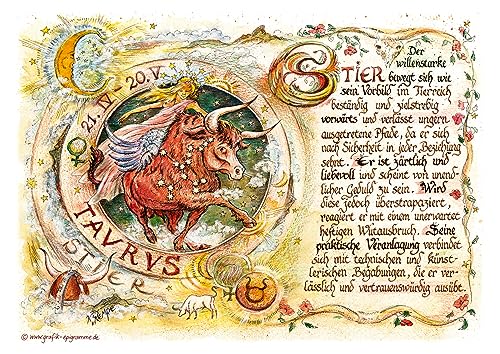 21. IV - 20. V.
TAURUS
STIER
Der
willensstarke
STIER bewegt sich wie
sein Vorbild im Tierreich
beständig und zielstrebig
vorwärts und verlässt ungern
ausgetretene Pfade, da er sich
nach Sicherheit in jeder Beziehung
sehnt. Er ist zärtlich und
liebevoll und scheint von unend-
licher Geduld zu sein. Wird
diese jedoch überstrapaziert,
reagiert er mit einem unerwartet
heftigen Wutausbruch. Seine
praktische Veranlagung verbindet
sich mit technischen und künst-
lerischen Begabungen, die er ver-
lässlich und vertrauenswürdig ausübt.
© www.grafik-epigramme.de